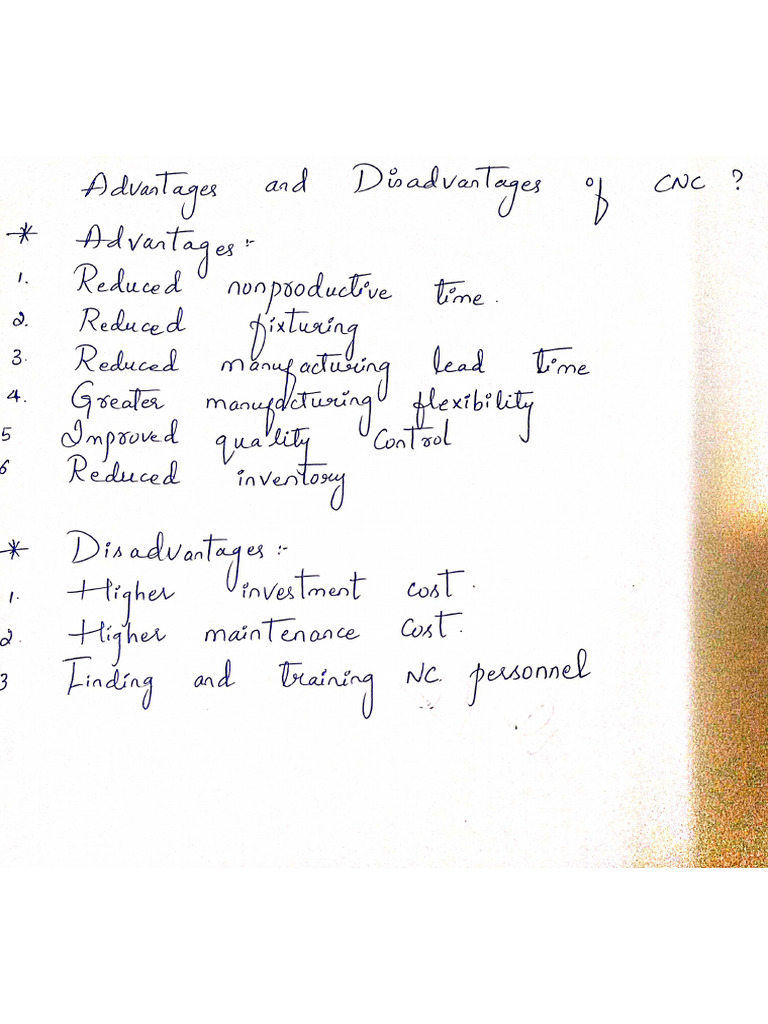 Advantages and Disadvantages of CNC ?
* Advantages :-
1. Reduced nonproductive time .
2. Reduced fixturing
3. Reduced manufacturing lead time
4. Greater manufacturing flexibility
5 Improved quality control
6 Reduced inventory
* Disadvantages :-
1. Higher investment cost .
2. Higher maintenance cost .
3 Finding and training NC personnel